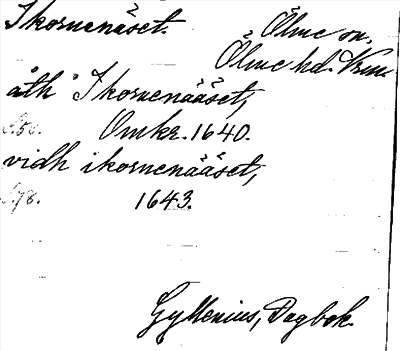 Ikornenäset. Ölme sn,
Ölme hd. Vrml.
åth Ikornenääset,
S. 50. Omkr. 1640.
vidh ikornenääset,
S. 78. 1643.
Gyllenius, Dagbok.